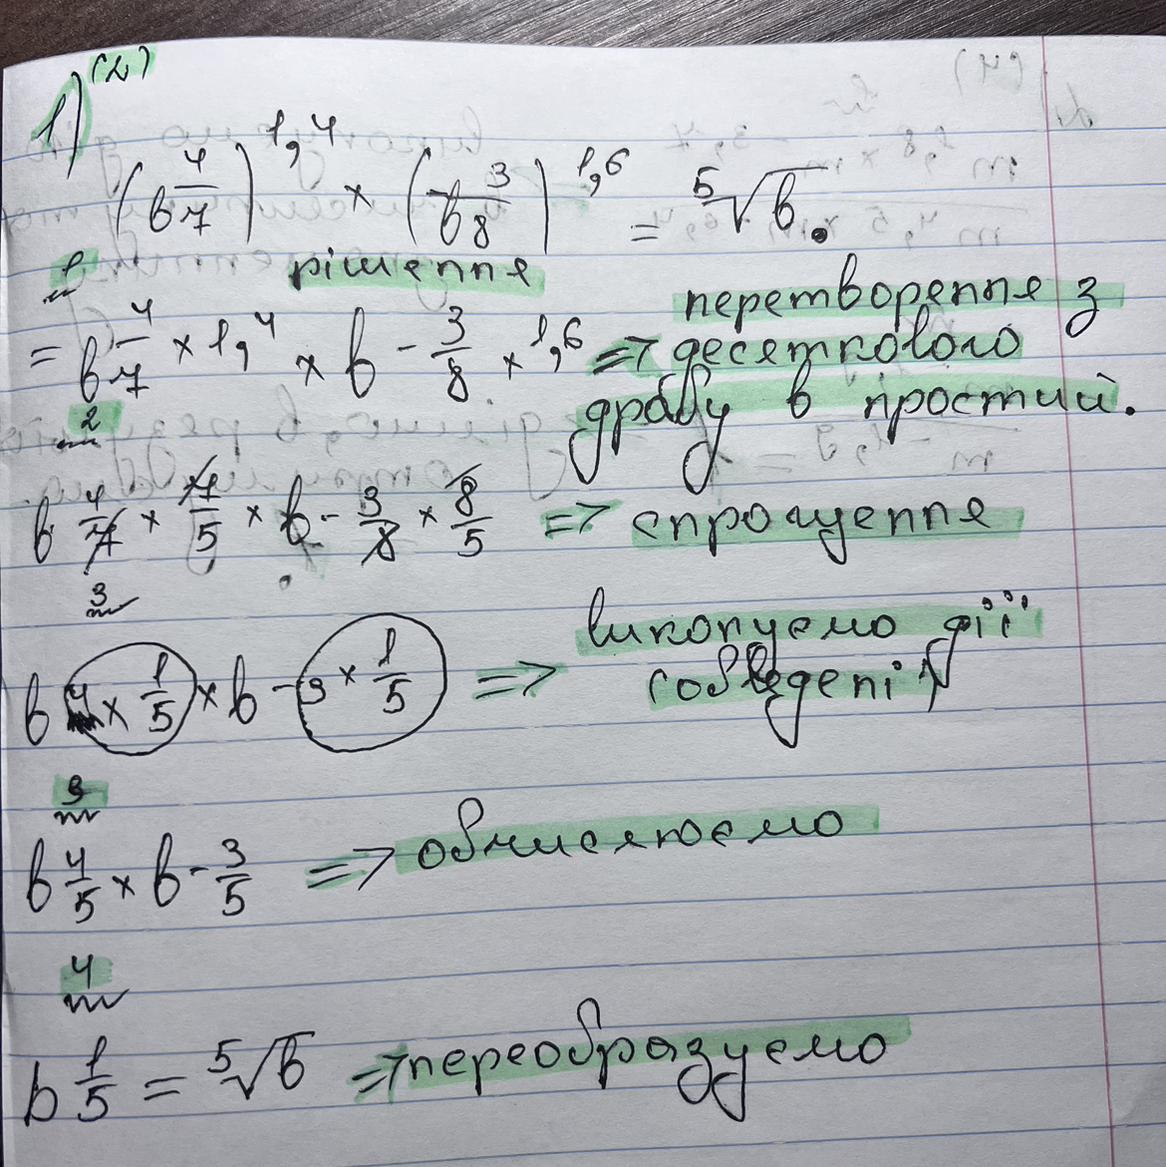 1) (2)
(b 4/7)^1,4 × (b 3/8)^1,6 = ⁵√b.
1 рішення
= b 4/7 × 1,4 × b - 3/8 × 1,6 => перетворення з
десяткового
дробу в простий.
2
b 4/7 × 7/5 × b - 3/8 × 8/5 => спрощення
3
b 4 × 1/5 × b - 3 × 1/5 => виконуємо дії
3
b 4/5 × b - 3/5 => обчислюємо
4
b 1/5 = ⁵√b => переобразуємо